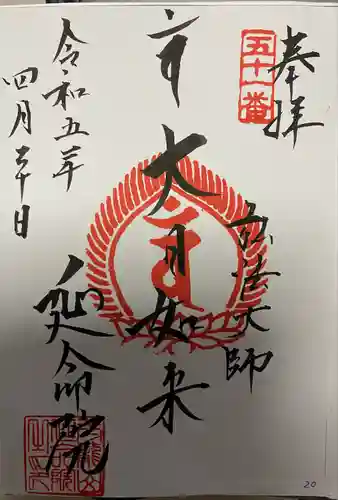 奉拝
五十一番
大日如来
弘法大師
延命院
令和五年
四月 日
20